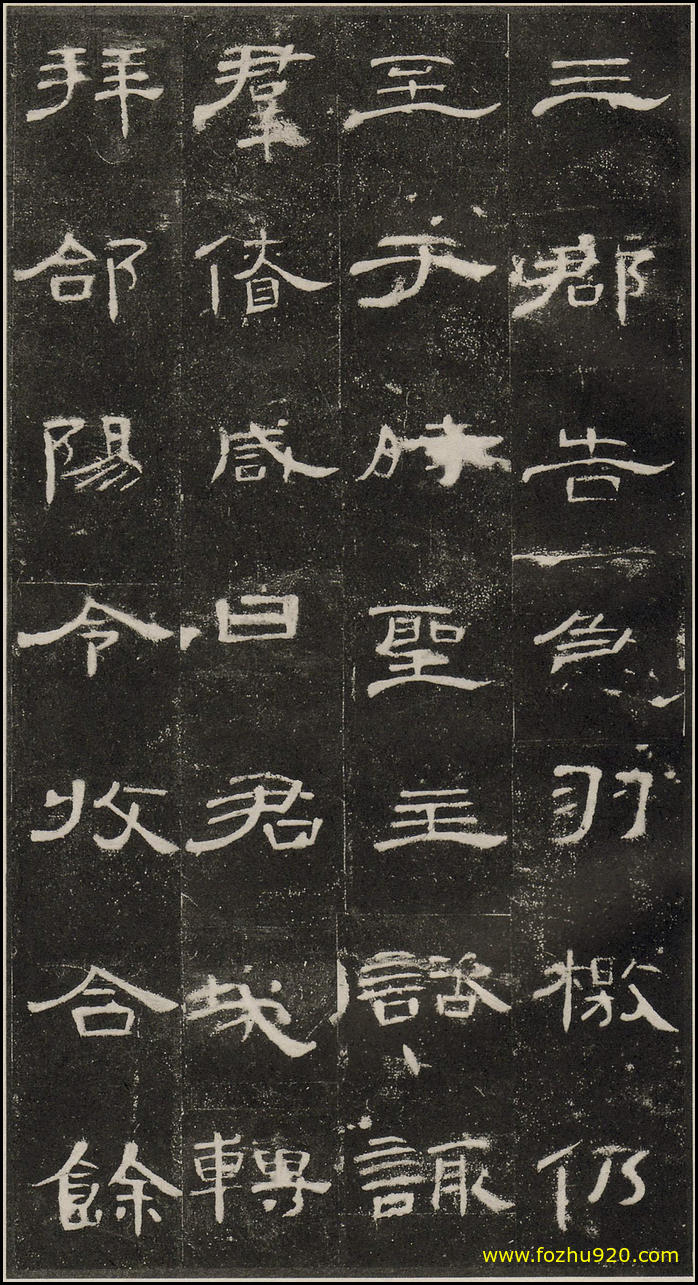 三郡告急羽檄仍
至于時聖主諮諏
羣僚咸曰君哉轉
拜郃陽令收合餘
www.fozhu920.com